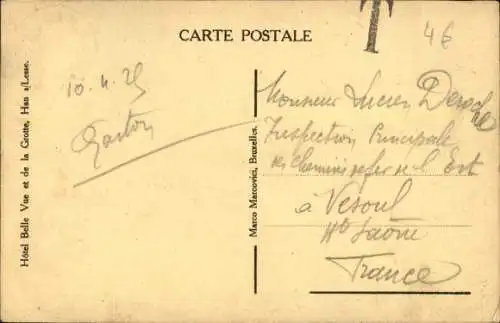 CARTE POSTALE
T
46
10.4.25
Gaston
Monsieur Lucien Deroche
Inspection Principale
des chemins de fer de l' Est
à Vesoul
Hte Saône
France
Hôtel Belle Vue et de la Grotte, Han s/Lesse.
Marco Marcovici, Bruxelles.